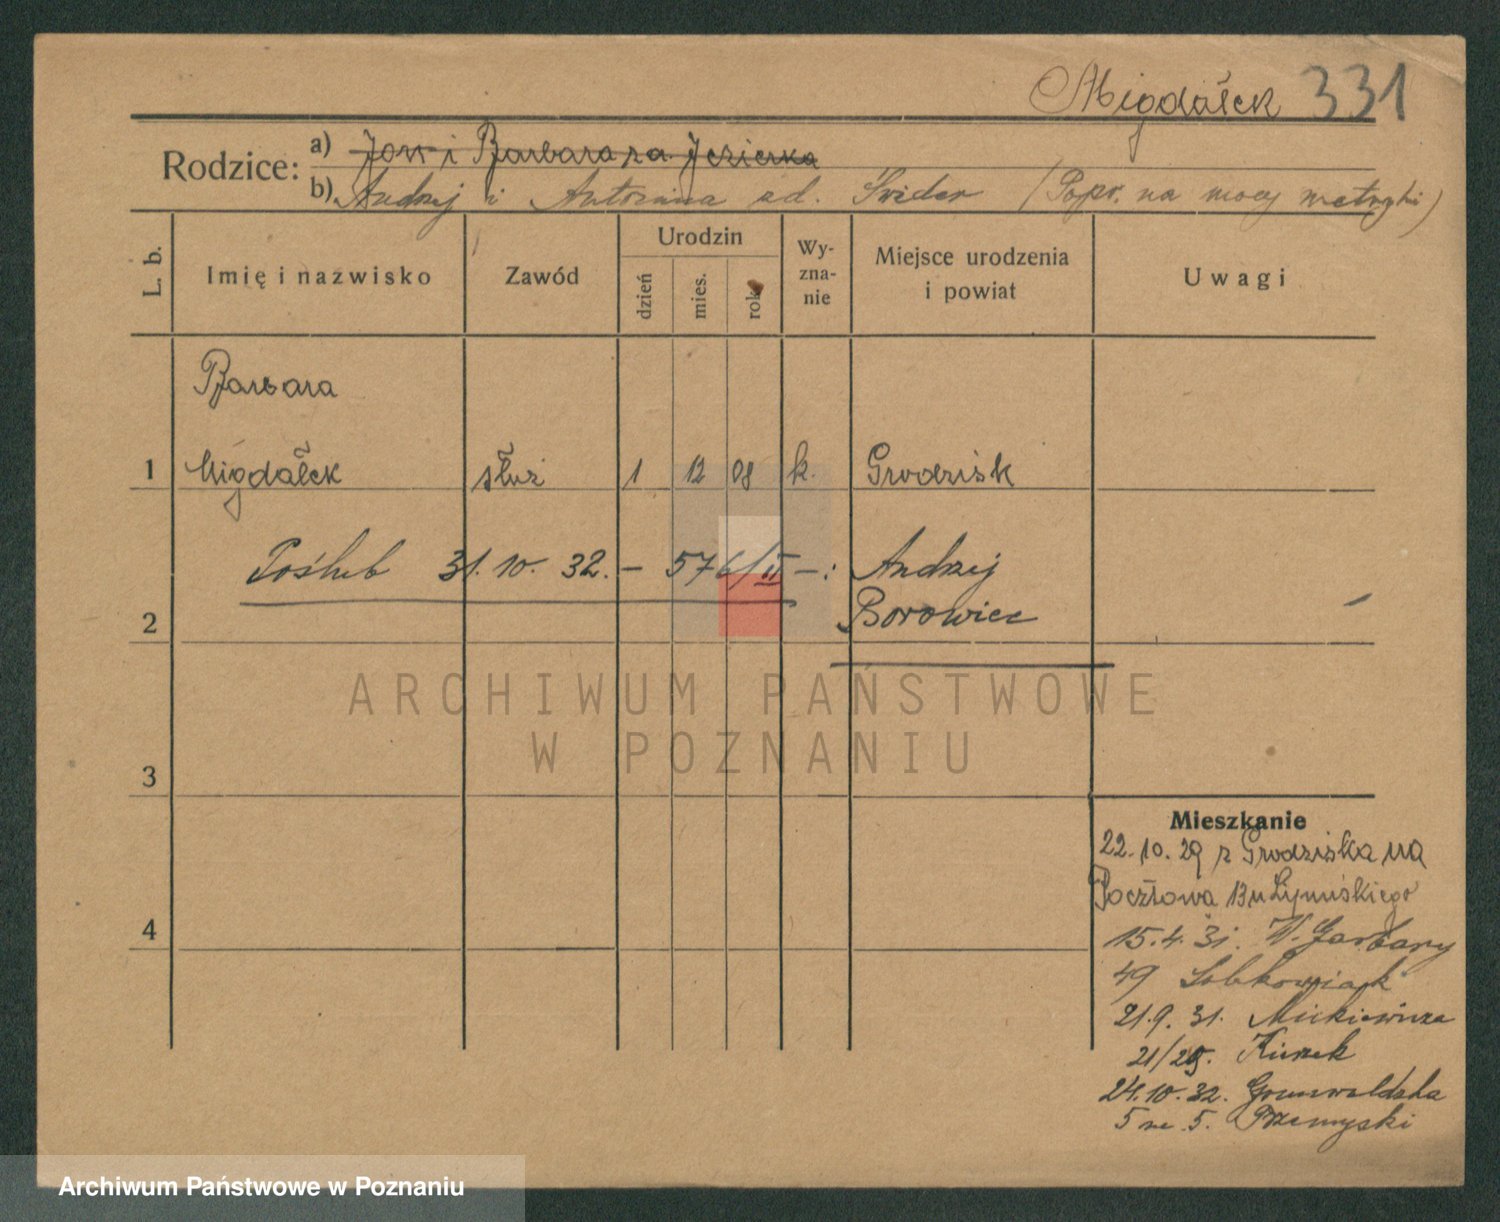 Migdałek 331
Rodzice: a) Jan i Barbara za. Jezierka
b) Andrzej i Antonina zd. Świder (Popr. na mocy metryki)
L. b. Imię i nazwisko Zawód Urodzin dzień mies. rok Wy-zna-nie Miejsce urodzenia i powiat Uwagi
Barbara
1 Migdałek służ 1 12 08 k. Grodzisk
Poślub 31. 10. 32. – 576/II –: Andrzej
2 Borowiec
3
Mieszkanie
22.10.29 z Grodziska na
Pocztowa 13 u
4
15.4.31. W. Garbary
49 Sobkowiak
21.9.31. Mickiewicza
21/25. Kurek
24.10.32. Grunwaldzka
5 m. 5. Przemyski
ARCHIWUM PAŃSTWOWE
W POZNANIU
Archiwum Państwowe w Poznaniu